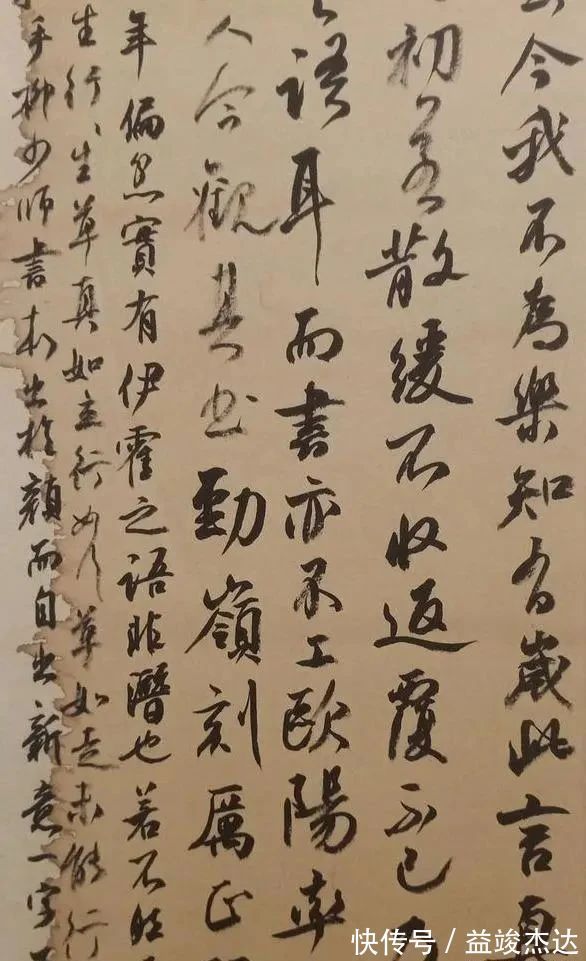 今我不為樂知有歲此言真
初若散緩不收返覆不已乃
語耳而書亦不工歐陽率
人今觀其書勁嶺刻厲正
年偏忽實有伊霍之語非譖也若不然
生行、生草真如立行如行草如走未能行
手柳少師書本出於顏而自出新意一字
快传号 / 益竣杰达